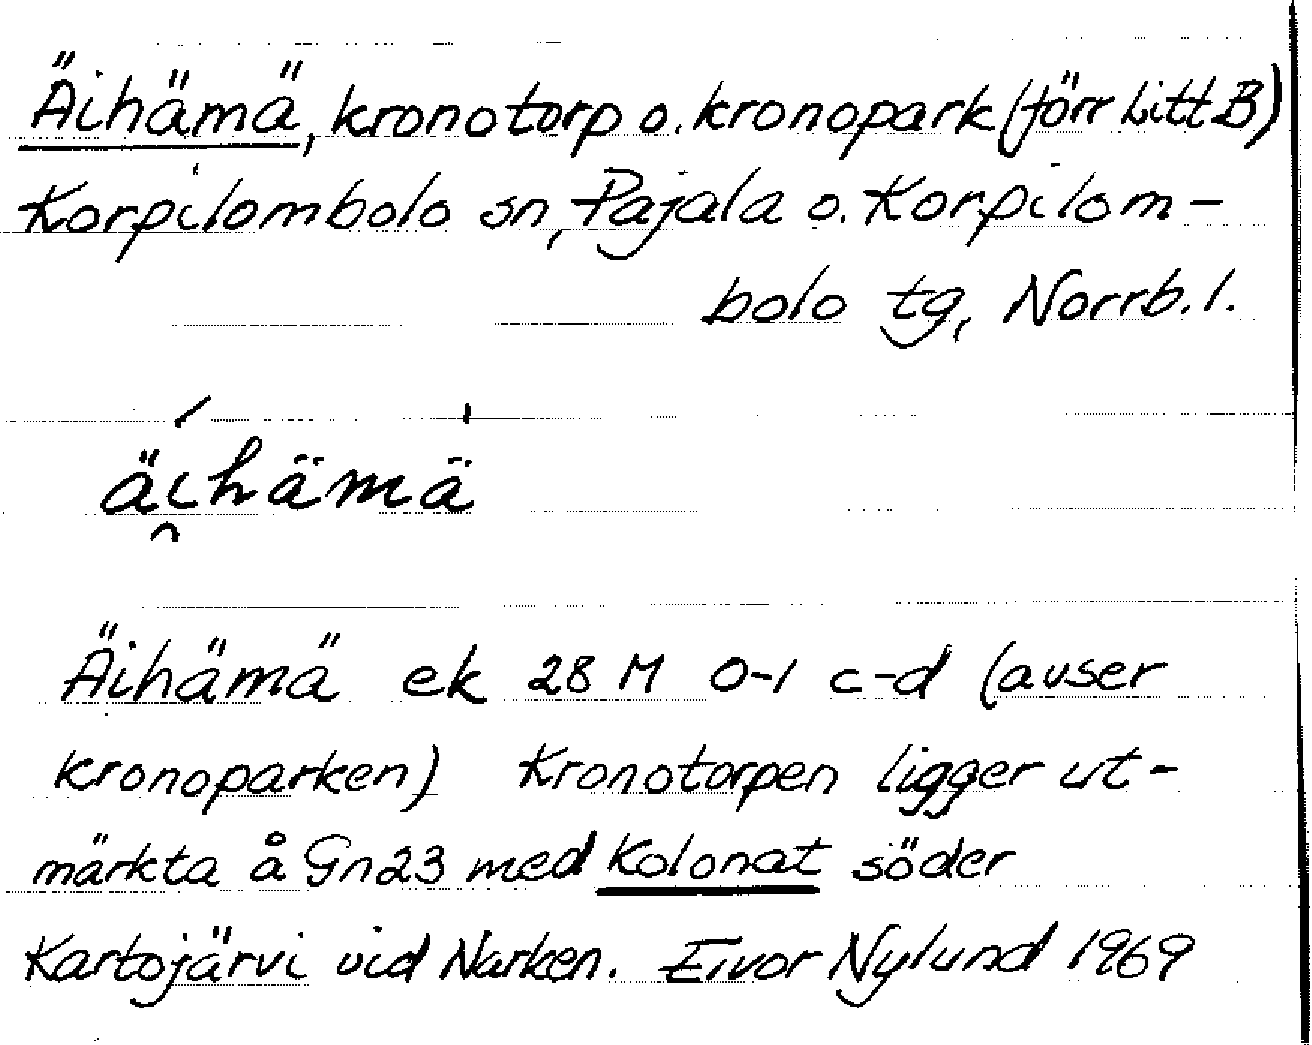 Äihämä, kronotorp o. kronopark (förr Litt B)
Korpilombolo sn, Pajala o. Korpilom-
bolo tg, Norrb. l.
äi̯hämä
Äihämä ek 28 M 0-1 c-d (avser
kronoparken) Kronotorpen ligger ut-
märkta å Gn23 med Kolonat söder
Kartojärvi vid Narken. Eivor Nylund 1969